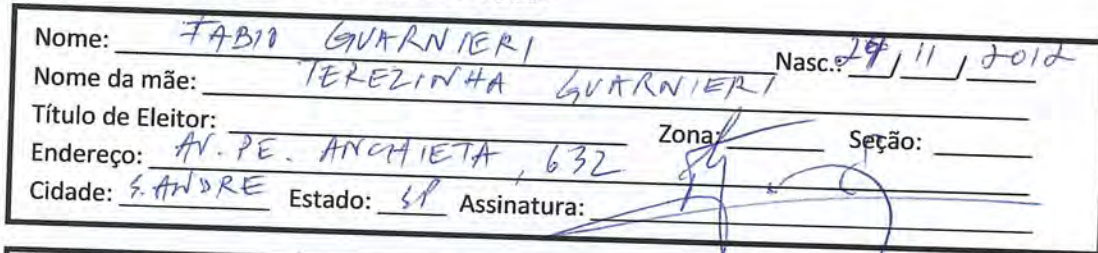 Nome: FABIO GUARNIERI Nasc.: 29/11/2012
Nome da mãe: TEREZINHA GUARNIERI
Título de Eleitor: Zona: Seção:
Endereço: AV. PE. ANCHIETA, 632
Cidade: S. ANDRE Estado: SP Assinatura: